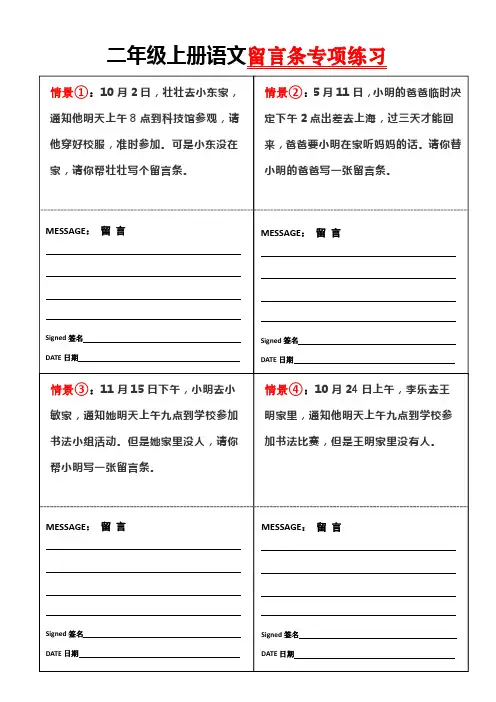 二年级上册语文留言条专项练习
情景①：10月2日，壮壮去小东家，
通知他明天上午8点到科技馆参观，请
他穿好校服，准时参加。可是小东没在
家，请你帮壮壮写个留言条。
MESSAGE： 留 言
Signed 签名
DATE 日期
情景②：5月11日，小明的爸爸临时决
定下午2点出差去上海，过三天才能回
来，爸爸要小明在家听妈妈的话。请你替
小明的爸爸写一张留言条。
MESSAGE： 留 言
Signed 签名
DATE 日期
情景③：11月15日下午，小明去小
敏家，通知她明天上午九点到学校参加
书法小组活动。但是她家里没人，请你
帮小明写一张留言条。
MESSAGE： 留 言
Signed 签名
DATE 日期
情景④：10月24日上午，李乐去王
明家里，通知他明天上午九点到学校参
加书法比赛，但是王明家里没有人。
MESSAGE： 留 言
Signed 签名
DATE 日期